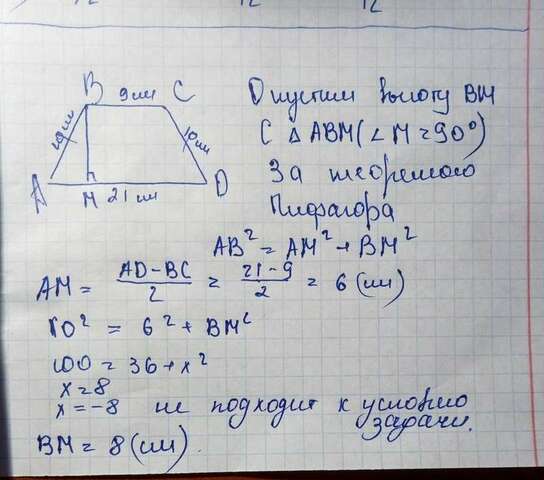 B 9см C
10см
10см
A M 21см D
Опустим высоту BM
С △ ABM (∠ M = 90°)
За теоремою
Пифагора
AB² = AM² + BM²
AM = (AD-BC)/2 = (21-9)/2 = 6 (см)
10² = 6² + BM²
100 = 36 + x²
x = 8
x = -8 не подходит к условию
задачи.
BM = 8 (см).